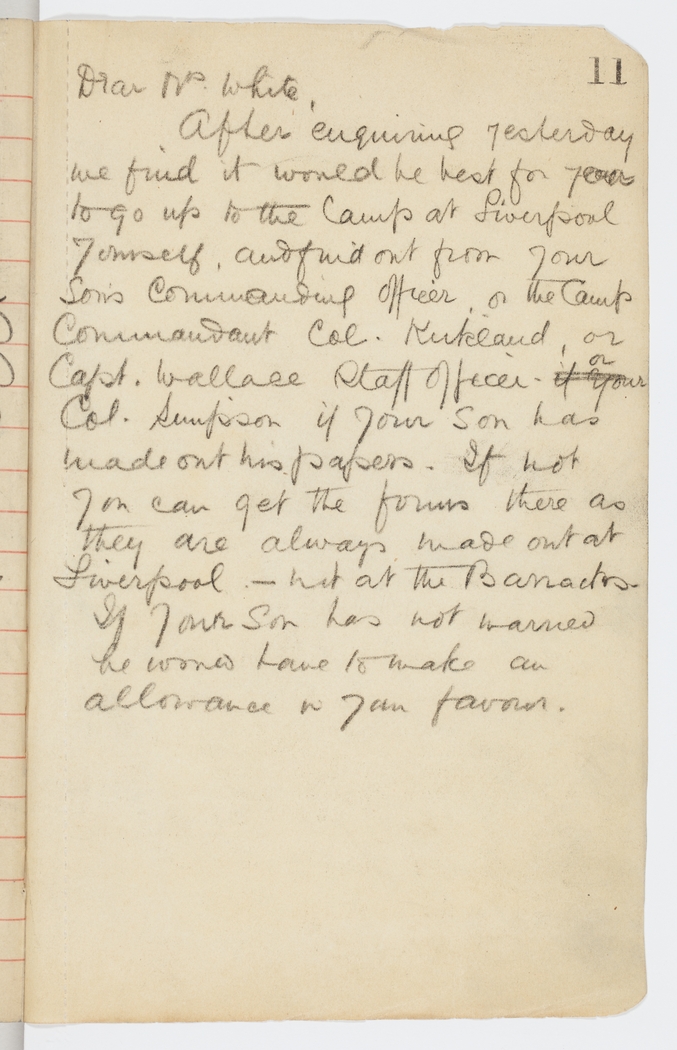 11
Dear Mrs White,
After enquiring yesterday
we find it would be best for you
to go up to the Camp at Liverpool
Yourself, and find out from your
Son's Commanding Officer, or the Camp
Commandant Col. Kirkland, or
Capt. Wallace Staff Officer. if your or
Col. Simpson if your Son has
made out his papers. If not
you can get the forms there as
they are always made out at
Liverpool – not at the Barracks.
If your Son has not married
he would have to make an
allowance in your favour.